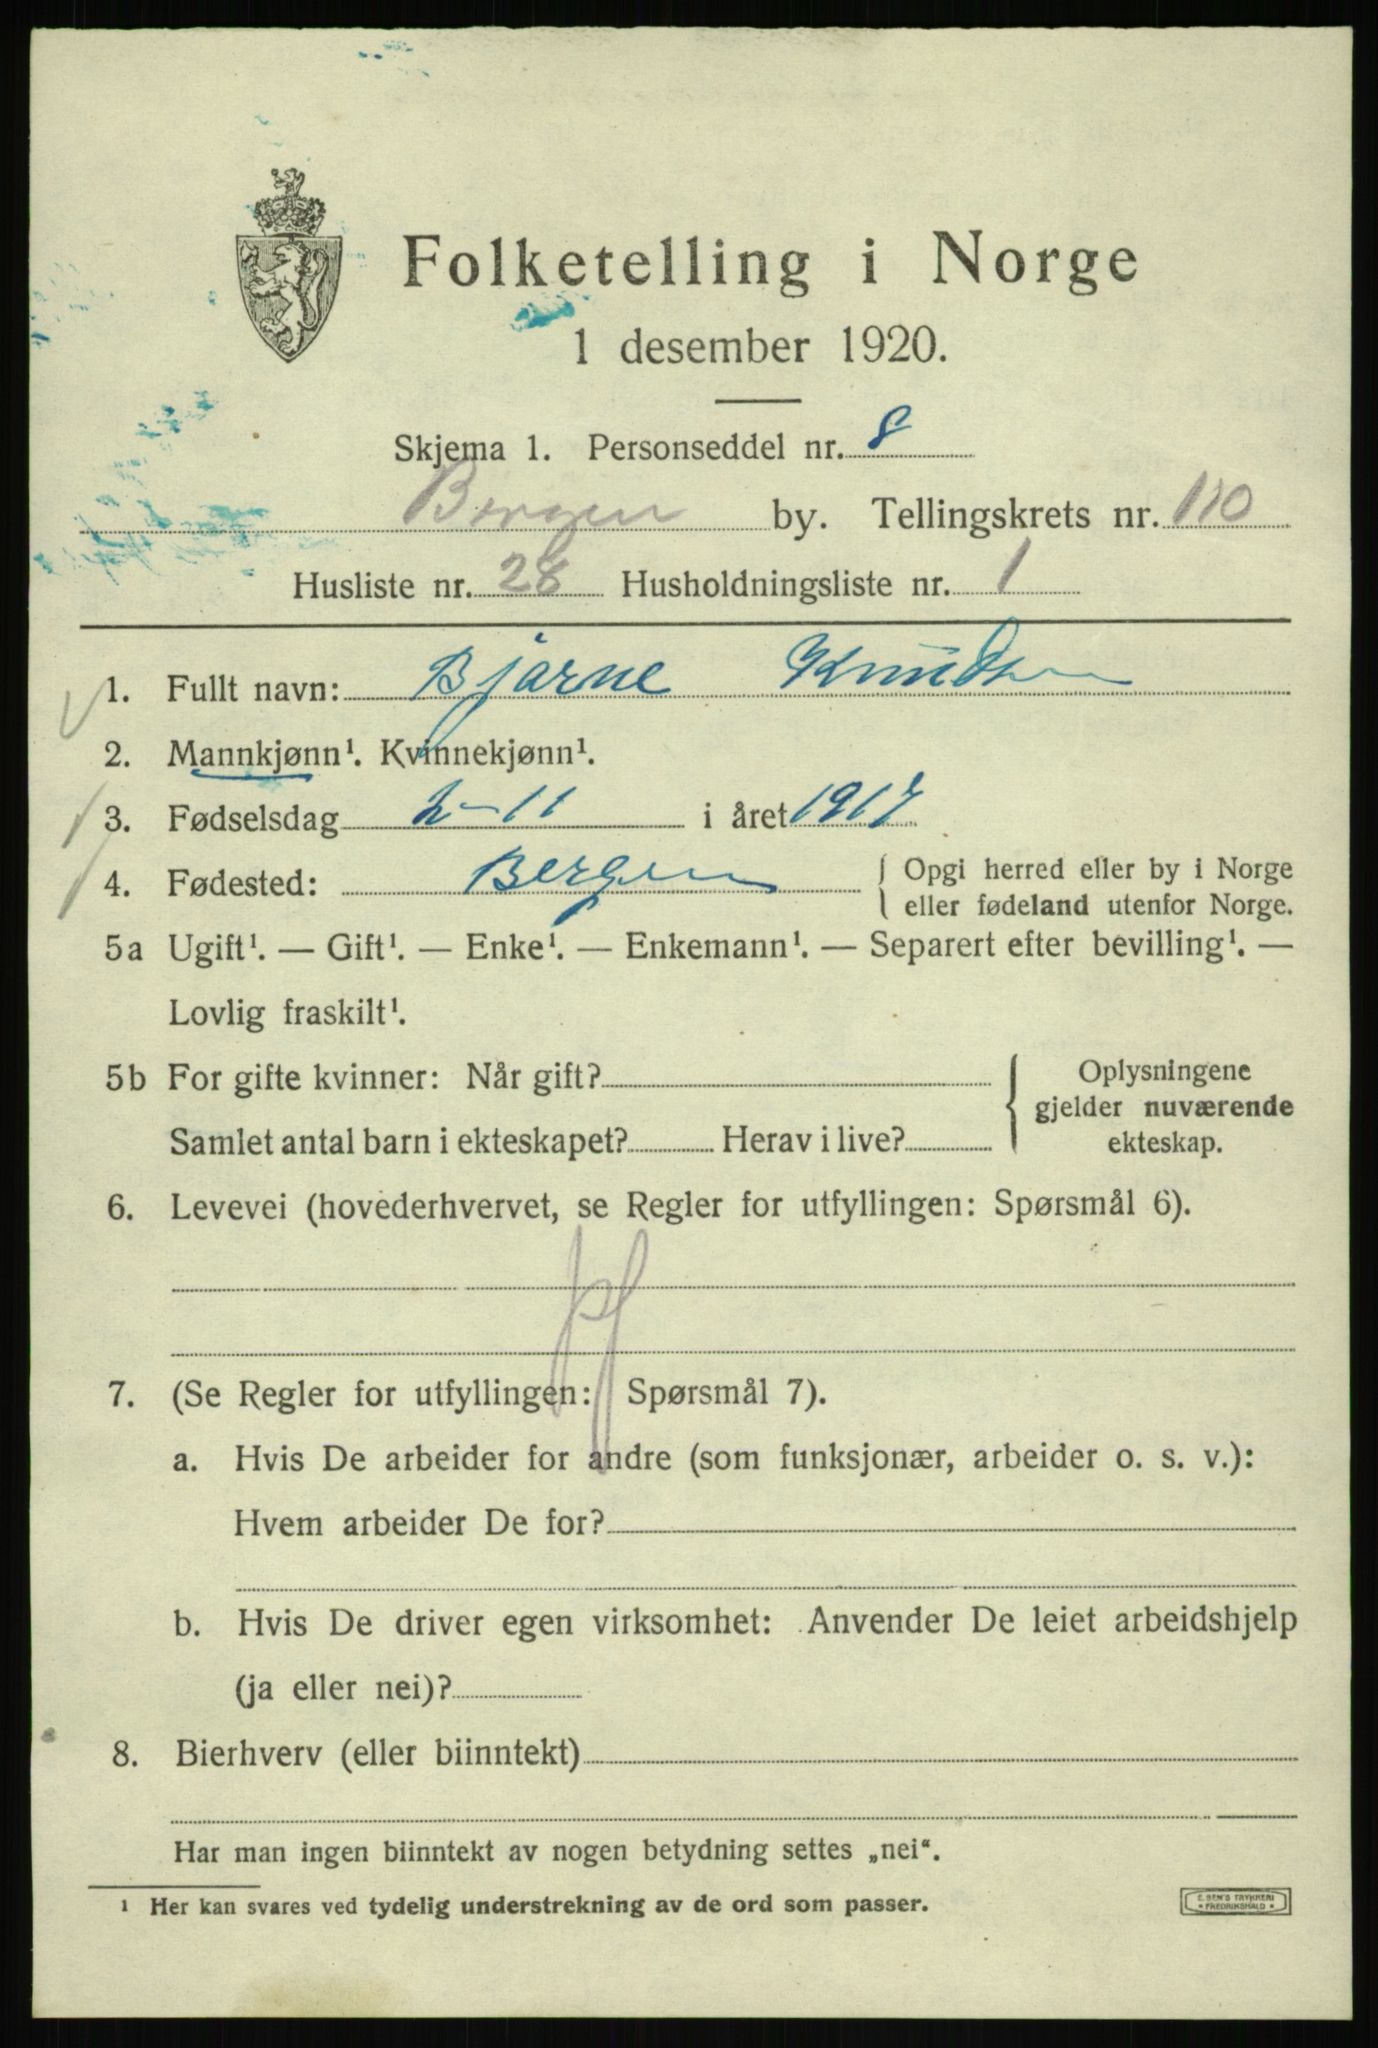 Folketelling i Norge
1 desember 1920.
Skjema 1. Personseddel nr. 8
Bergen by. Tellingskrets nr. 110
Husliste nr. 28 Husholdningsliste nr. 1
1. Fullt navn: Bjarne Knudsen
2. Mannkjønn¹. Kvinnekjønn¹.
3. Fødselsdag 2-11 i året 1917
4. Fødested: Bergen { Opgi herred eller by i Norge
eller fødeland utenfor Norge.
5a Ugift¹. — Gift¹. — Enke¹. — Enkemann¹. — Separert efter bevilling¹. —
Lovlig fraskilt¹.
5b For gifte kvinner: Når gift? { Oplysningene
gjelder nuværende
Samlet antal barn i ekteskapet? Herav i live? ekteskap.
6. Levevei (hovederhvervet, se Regler for utfyllingen: Spørsmål 6).
7. (Se Regler for utfyllingen: Spørsmål 7).
a. Hvis De arbeider for andre (som funksjonær, arbeider o. s. v.):
Hvem arbeider De for?
b. Hvis De driver egen virksomhet: Anvender De leiet arbeidshjelp
(ja eller nei)?
8. Bierhverv (eller biinntekt)
Har man ingen biinntekt av nogen betydning settes „nei“.
¹ Her kan svares ved tydelig understrekning av de ord som passer.
E. SEM'S TRYKKERI
* FREDRIKSHALD *